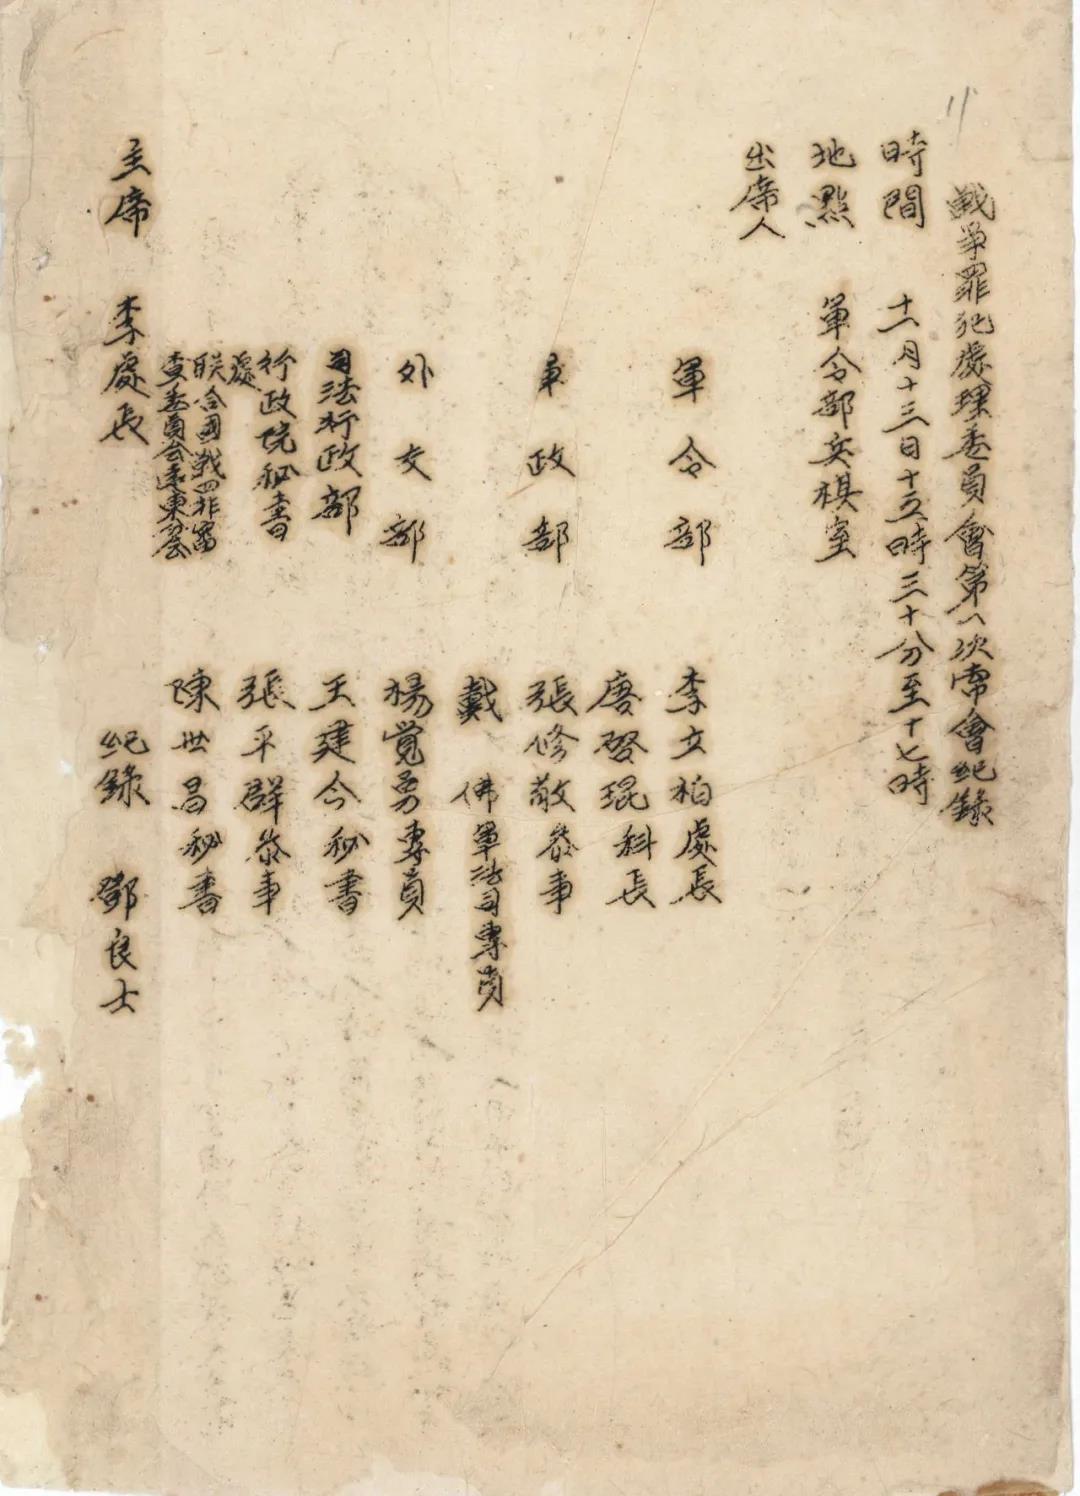 11
戰爭罪犯處理委員會第八次常會紀錄
時間 十一月十三日十五時三十分至十七時
地點 軍令部兵棋室
出席人
軍令部 李立柏處長
唐啟琨科長
軍政部 張修敬參事
戴 佛軍法司專員
外交部 楊覺勇專員
司法行政部 王建今秘書
行政院秘書處 張平群參事
聯合國戰罪審查委員會遠東分會 陳世昌秘書
主席 李處長 紀錄 鄧良士